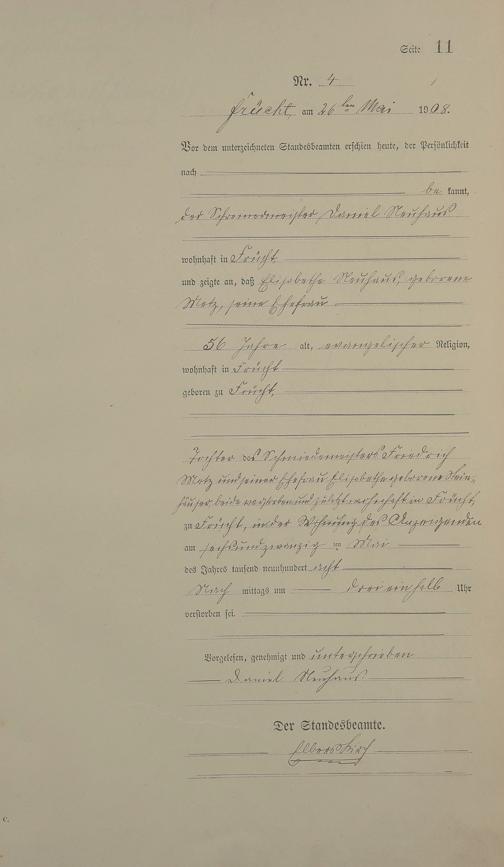 Seite 11
Nr. 4
Frücht, am 26ten Mai 1908.
Vor dem unterzeichneten Standesbeamten erschien heute, der Persönlichkeit
nach
be kannt,
der Schreinermeister Daniel Neuhaus
wohnhaft in Frücht
und zeigte an, daß Elisabethe Neuhaus, geborene
Metz, seine Ehefrau
56 Jahre alt, evangelischer Religion,
wohnhaft in Frücht
geboren zu Frücht,
Tochter des Schmiedemeisters Friedrich
Metz und seiner Ehefrau Elisabethe geborene
beide verstorben und zuletzt wohnhaft in Frücht,
zu Frücht, in der Wohnung des Anzeigenden
am sechsundzwanzig ten Mai
des Jahres tausend neunhundert acht
Nach mittags um drei ein halb Uhr
verstorben sei.
Vorgelesen, genehmigt und unterschrieben
Daniel Neuhaus
Der Standesbeamte.
c.